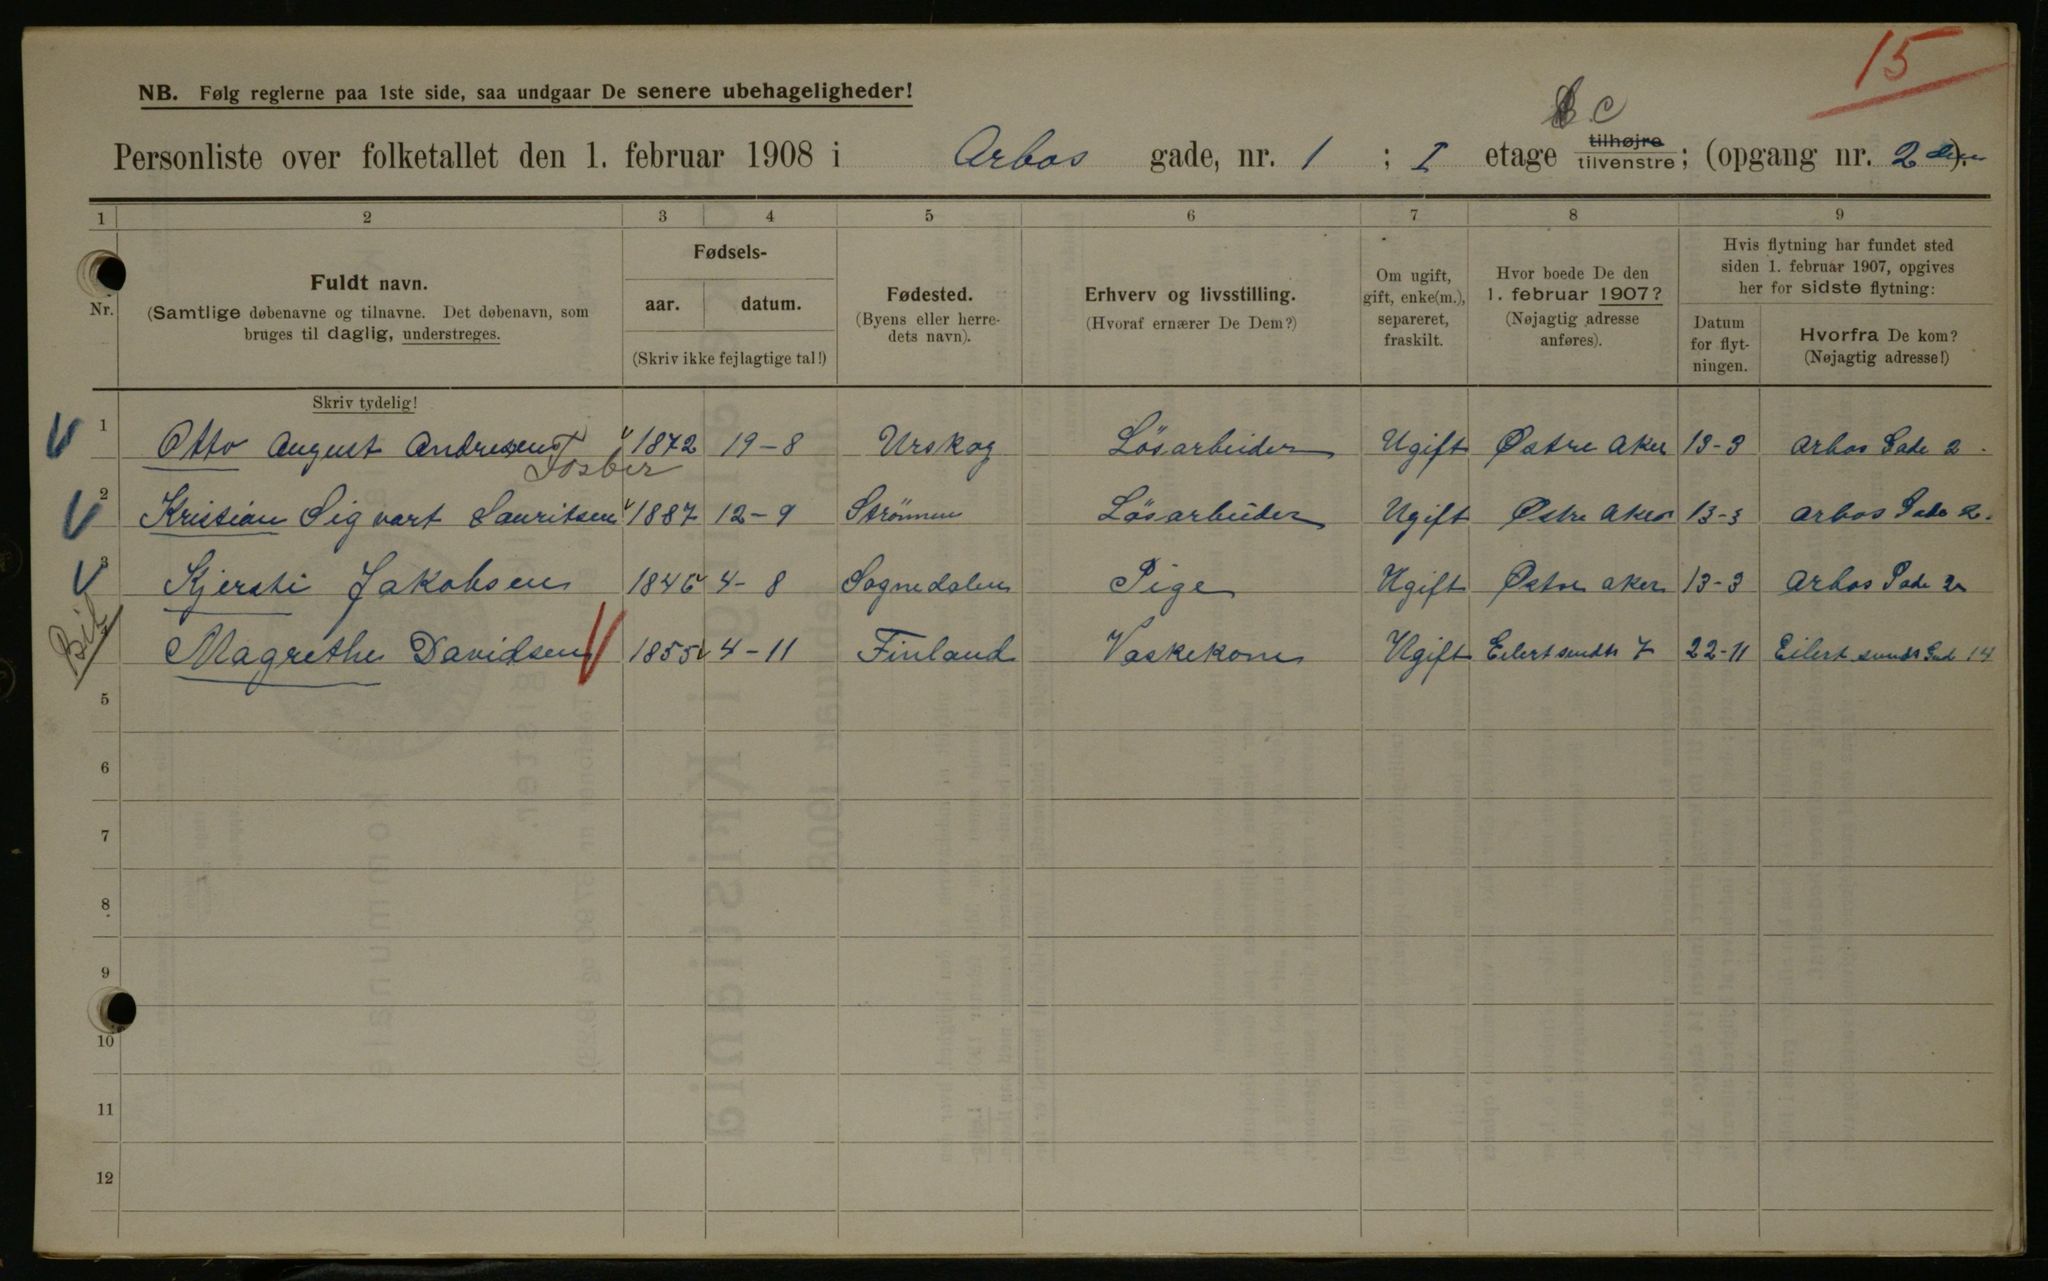 15
NB. Følg reglerne paa 1ste side, saa undgaar De senere ubehageligheder!
C
Personliste over folketallet den 1. februar 1908 i Arbos gade, nr. 1 ; I etage tilhøjre tilvenstre; (opgang nr. 2 ).
1 2 3 4 5 6 7 8 9
Nr.
Fuldt navn.
(Samtlige døbenavne og tilnavne. Det døbenavn, som
bruges til daglig, understreges.
Skriv tydelig!
Fødsels-
aar. datum.
(Skriv ikke fejlagtige tal!)
Fødested.
(Byens eller herre-
dets navn).
Erhverv og livsstilling.
(Hvoraf ernærer De Dem?)
Om ugift,
gift, enke(m.),
separeret,
fraskilt.
Hvor boede De den
1. februar 1907?
(Nøjagtig adresse
anføres).
Hvis flytning har fundet sted
siden 1. februar 1907, opgives
her for sidste flytning:
Datum
for flyt-
ningen.
Hvorfra De kom?
(Nøjagtig adresse!)
1 Otto August Andresen 1872 19-8 Urskog Løsarbeider Ugift Østre Aker 13-3 Arbos Gade 2
2 Kristian Sigvart Lauritsen 1887 12-9 Strømmen Løsarbeider Ugift Østre Aker 13-3 Arbos Gade 2.
3 Kjersti Jakobsen 1846 4-8 Sognedalen Pige Ugift Østre aker 13-3 Arbos Gade 2
Bil Magrethe Davidsen 1855 4-11 Finland Vaskekone Ugift Eilert sundts 7 22-11 Eilert sundts Gad 14
5
6
7
8
9
10
11
12